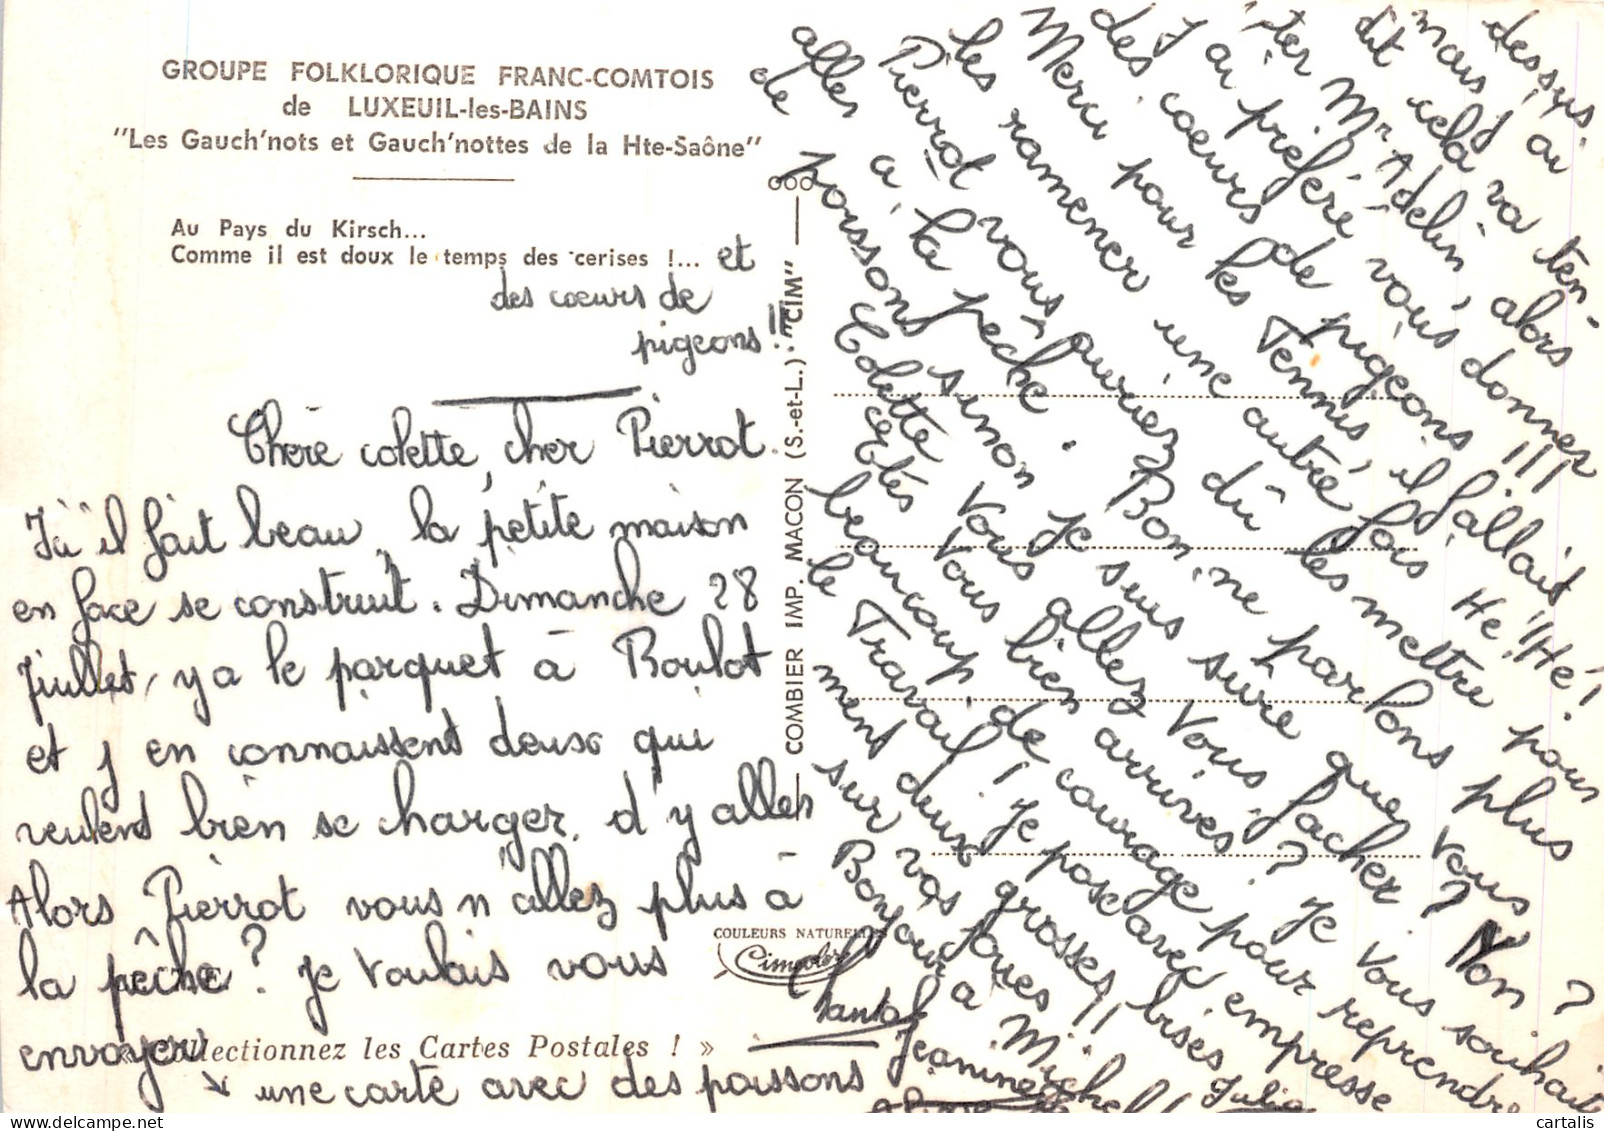 GROUPE FOLKLORIQUE FRANC-COMTOIS
de LUXEUIL-les-BAINS
"Les Gauch'nots et Gauch'nottes de la Hte-Saône"
Au Pays du Kirsch...
Comme il est doux le temps des cerises !... et
des coeurs de
pigeons !!
Chère colette, cher Pierrot.
Ici il fait beau, la petite maison
en face se construit. Dimanche 28
Juillet, y a le parquet à Boulot
et j en connaissent deux qui
veulent bien se charger d'y aller
Alors Pierrot vous n'allez plus à
la pêche ? je voulais vous
envoyer
une carte avec des poissons
dessus.
mais j ai
dit cela va ten-
ter Mr Adelin, alors
J ai préféré vous donner
des coeurs de pigeons !!!
Merci pour les Tennis, il fallait
les ramener une autre fois He ! He !
Pierrot vous auriez dû les mettre pour
aller à la pêche. Bon. ne parlons plus
de poissons sinon je suis sûre que vous
Colette vous allez vous facher ? Non ?
Etes vous bien arrivés ? Je vous souhaite
beaucoup de courage pour reprendre
le Travail ! Je pose avec empresse
ment deux grosses bises
sur vos joues !!
Bonjour à Michel
Chantal
Jeanine
Julia
COMBIER IMP. MACON (S.-et-L.) "CIM"
COULEURS NATURELLES
Cimcolor
lectionnez les Cartes Postales ! »
delcampe.net
cartalis